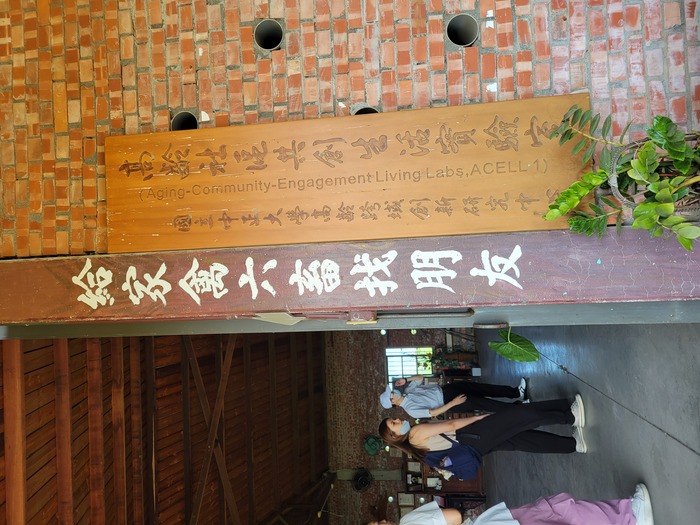 高齡社區共創生活實驗室
(Aging-Community-Engagement Living Labs,ACELL-1)
國立中正大學高齡跨域創新研究中心
給家禽六畜找朋友